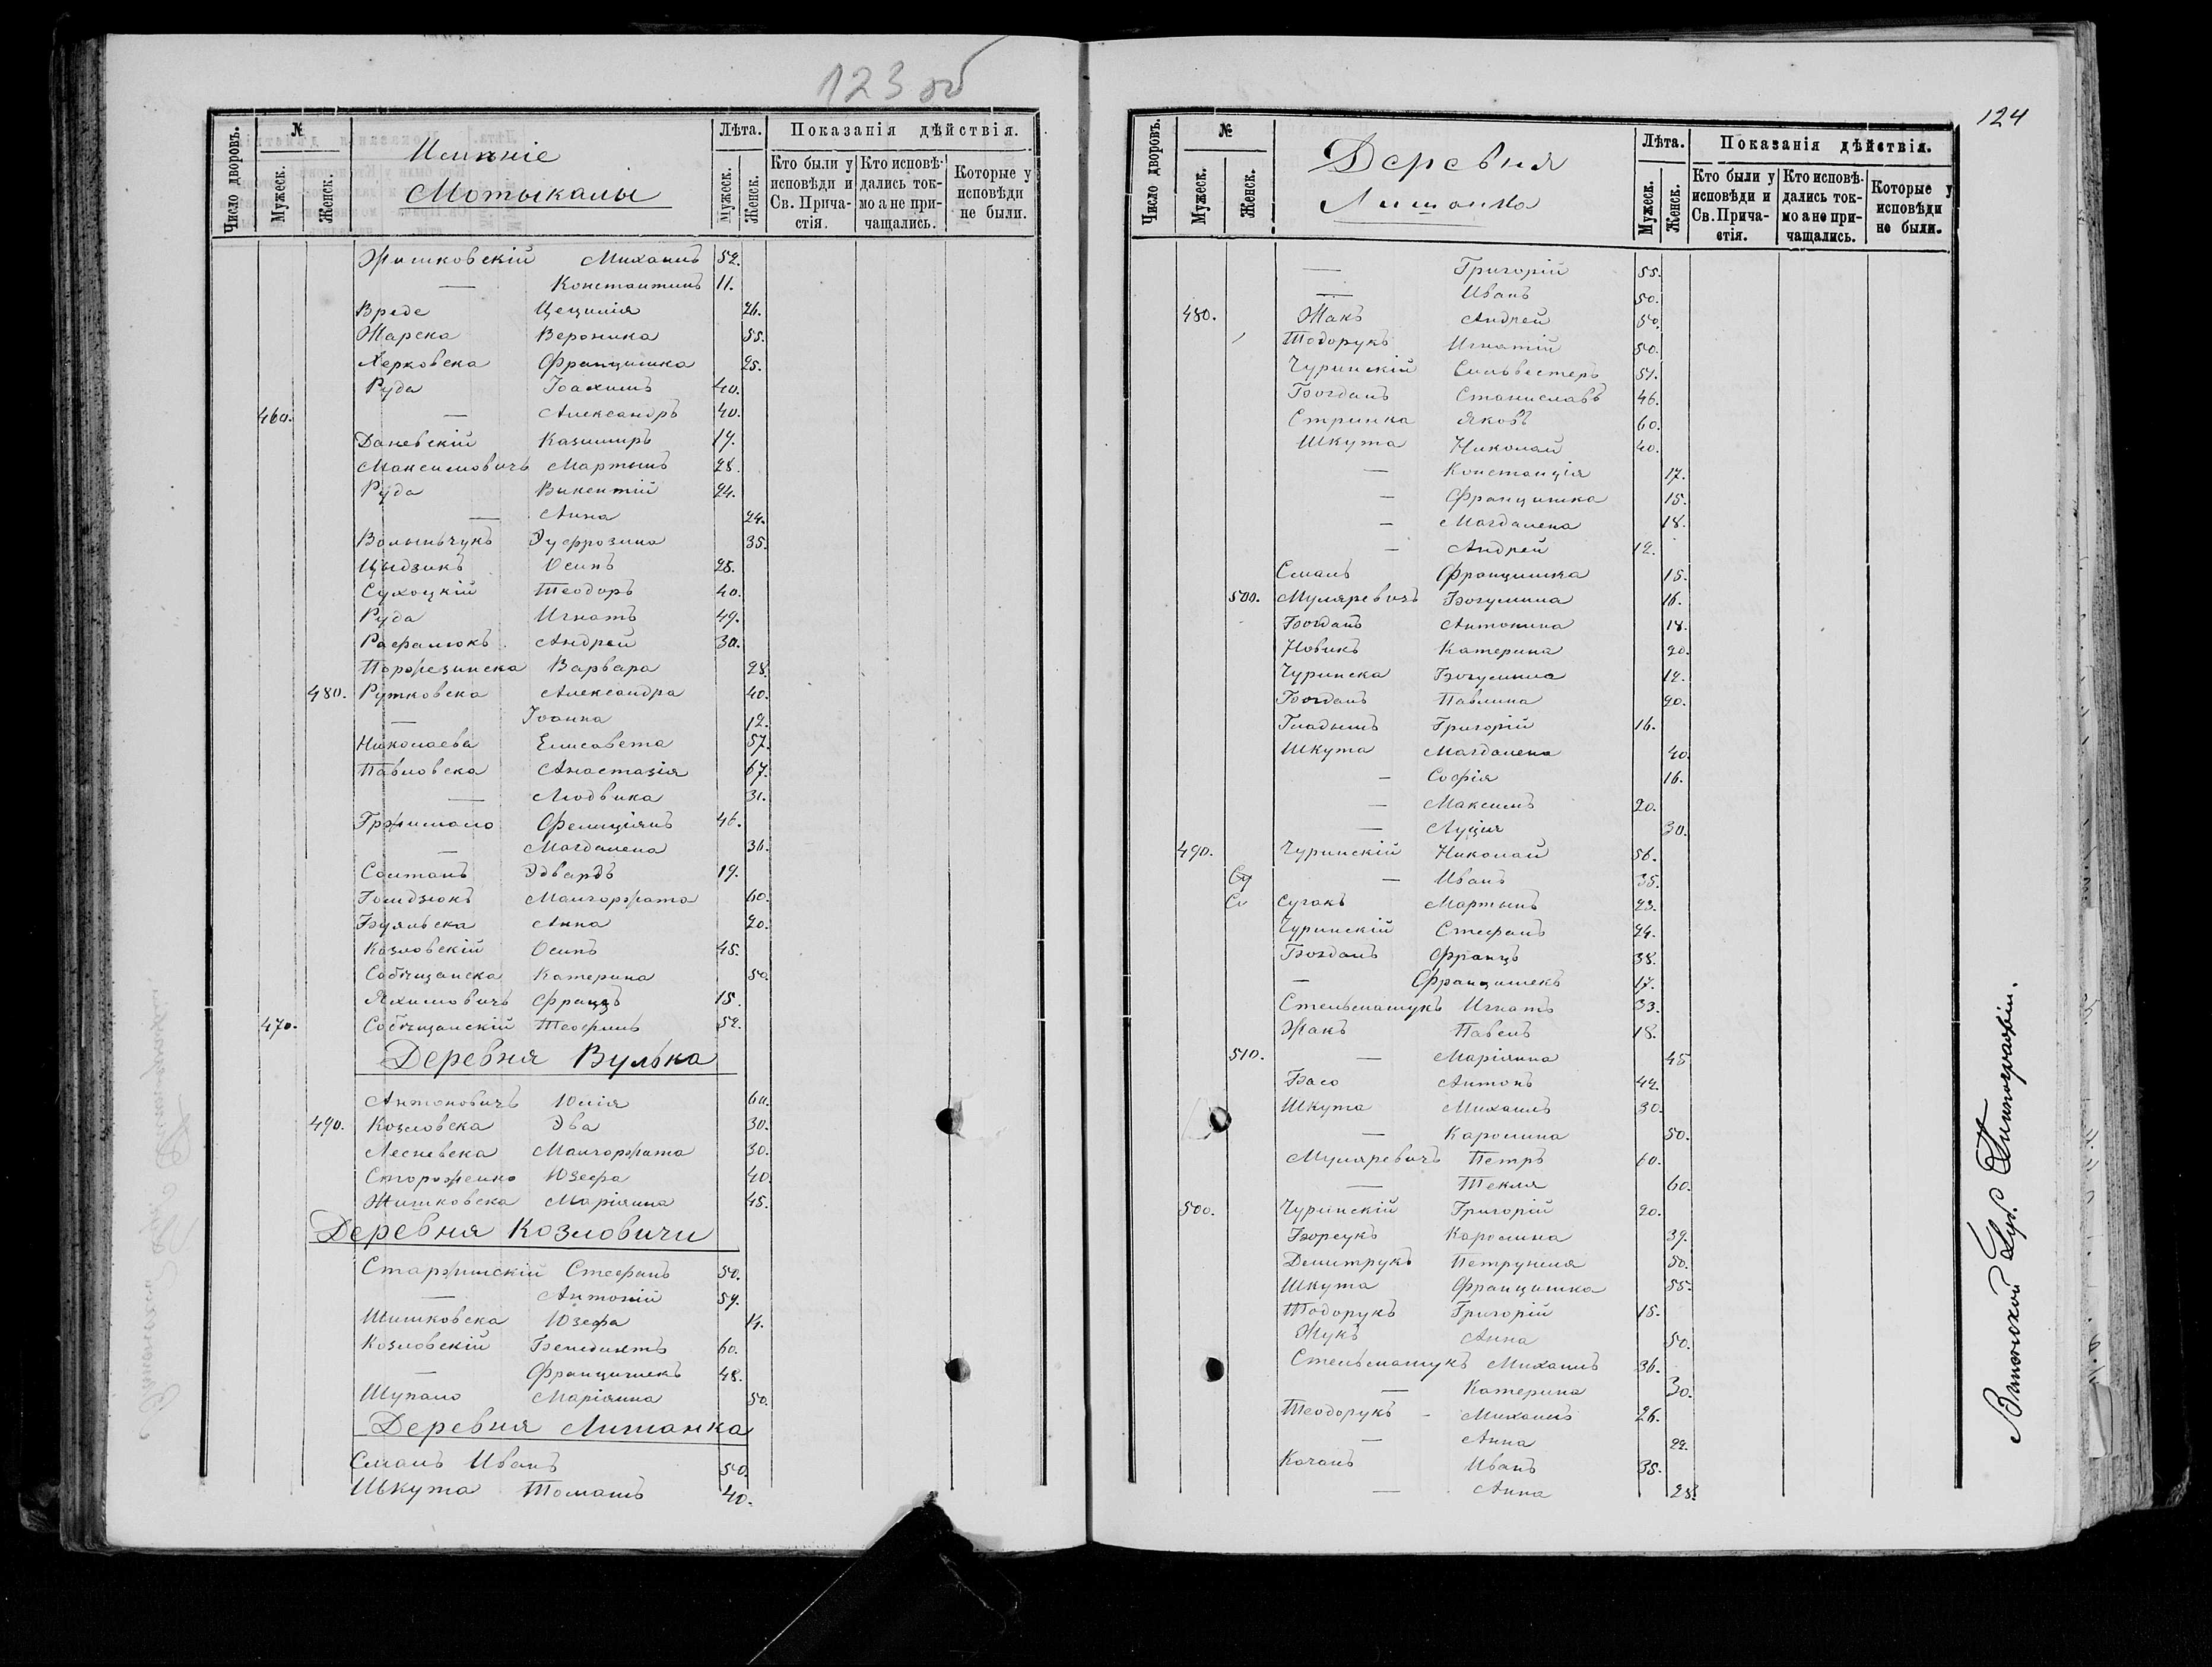 123 об
Число дворовъ. № Мужеск. Женск. Лѣта. Мужеск. Женск. Показанія дѣйствія.
Кто были у исповѣди и Св. Причастія. Кто исповѣдались токмо а не причащались. Которые у исповѣди не были.
Имѣніе
Мотыкалы
Жишковскій Михаилъ 52.
— Константинъ 11.
Вреде Цецилія 26.
Жарска Вероника 55.
Херковска Францишка 25.
Руда Іоахимъ 40.
460. — Александръ 40.
Даневскій Казимиръ 19.
Максимовичъ Мартинъ 28.
Руда Викентій 24.
— Анна 24.
Волыньчукъ Эуфрозина 35.
Цыдзикъ Осипъ 25.
Сухоцкій Теодоръ 40.
Руда Игнатъ 49.
Рафалюкъ Андрей 30.
Порожезинска Варвара 28.
480. Рутковска Александра 40.
— Іоанна 12.
Николаева Елисавета 57.
Павловска Анастазія 67.
— Людвика 31.
Гржимало Фелиціянъ 46.
— Магдалена 36.
Солтанъ Эдвардъ 19.
Голидзюкъ Малгоржата 60.
Буяльска Анна 20.
Козловскій Осипъ 45.
Собѣщанска Катерина 50.
Яхимовичъ Францъ 15.
470. Собѣщанскій Теофилъ 52.
Деревня Вулька
Антоновичъ Юлія 60.
490. Козловска Эва 30.
Лесневска Малгоржата 30.
Стороженко Юзефа 40.
Жишковска Маріянна 45.
Деревня Козловичи
Старжинскій Стефанъ 50.
— Антоній 54.
Шишковска Юзефа 14.
Козловскій Бенедиктъ 60.
— Францишекъ 48.
Шупало Маріянна 50.
Деревня Лышанка
Смаль Иванъ 50.
Шкута Томашъ 40.
124
Число дворовъ. № Мужеск. Женск. Лѣта. Мужеск. Женск. Показанія дѣйствія.
Кто были у исповѣди и Св. Причастія. Кто исповѣдались токмо а не причащались. Которые у исповѣди не были.
Деревня
Лышанка
— Григорій 55.
— Иванъ 50.
480. Жакъ Андрей 50.
Тодорукъ Игнатій 50.
Чуринскій Сильвестеръ 51.
Богданъ Станиславъ 46.
Стринка Яковъ 60.
Шкута Николай 40.
— Констанція 17.
— Францишка 15.
— Магдалена 18.
— Андрей 12.
Смаль Францишка 15.
500. Муляревичъ Богумила 16.
Богданъ Антонина 18.
Новикъ Катерина 20.
Чуринска Богумила 12.
Богданъ Павлина 20.
Гладышъ Григорій 16.
Шкута Магдалена 40.
— Софія 16.
— Максимъ 20.
— Луція 30.
490. Чуринскій Николай 56.
— Иванъ 35.
Сугакъ Мартынъ 23.
Чуринскій Стефанъ 24.
Богданъ Францъ 38.
— Францишекъ 17.
Стельмашукъ Игнатъ 33.
Жакъ Павелъ 18.
510. — Маріянна 45
Басо Антонъ 42.
Шкута Михаилъ 30.
— Каролина 50.
Муляревичъ Петръ 60.
— Текля 60.
500. Чуринскій Григорій 20.
Борсукъ Каролина 39.
Дмитрукъ Петрунеля 50.
Шкута Францишка 55.
Тодорукъ Григорій 15.
Жукъ Анна 50.
Стельмашукъ Михаилъ 36.
— Катерина 30.
Теодорукъ Михаилъ 26.
— Анна 22.
Качанъ Иванъ 35.
— Анна 25.
Виленской Губ. Типографіи.